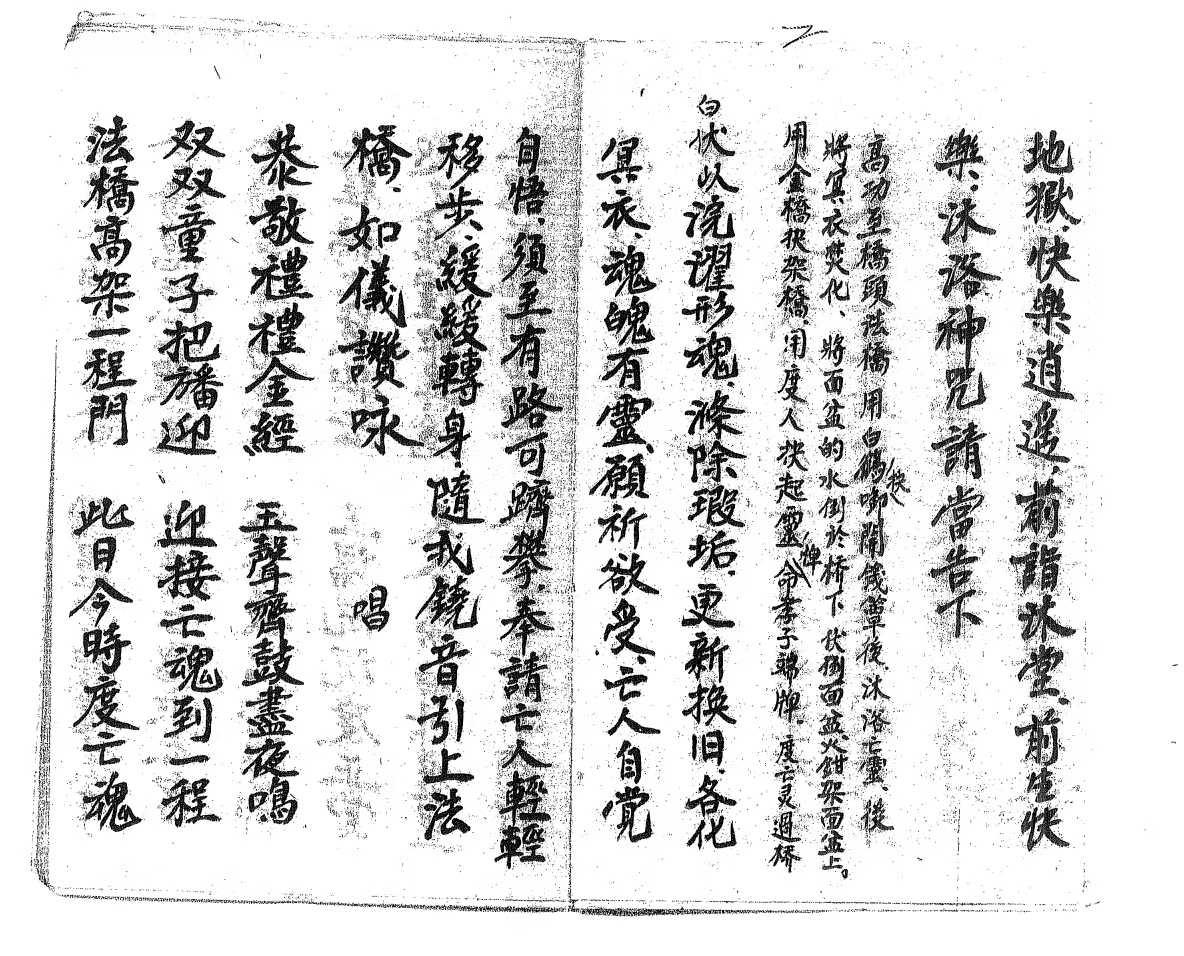 地獄、快樂逍遥、前詣沐堂、前生快
樂、沐浴神咒請當告下
高功至橋頭法橋用白鷄啣開錢章後、沐浴亡靈、後
將冥衣焚化、將面盆的水倒於桥下伏倒面盆、火鉗架面盆上。
用金橋秧架橋、用度人秧起靈牌命孝子端牌、度亡灵過桥
白伏以浣濯形魂、滌除瑕垢、更新换旧、各化
冥衣、魂魄有靈、願祈歆受、亡人自覚
自悟、須至有路可躋攀、奉請亡人輕輕
移步、緩緩轉身、隨我鐃音引上法
橋、如儀讚咏 唱
恭敬禮禮金經 玉聲齊鼓盡夜鳴
双双童子把旛迎 迎接亡魂到一程
法橋高架一程門 此日今時度亡魂